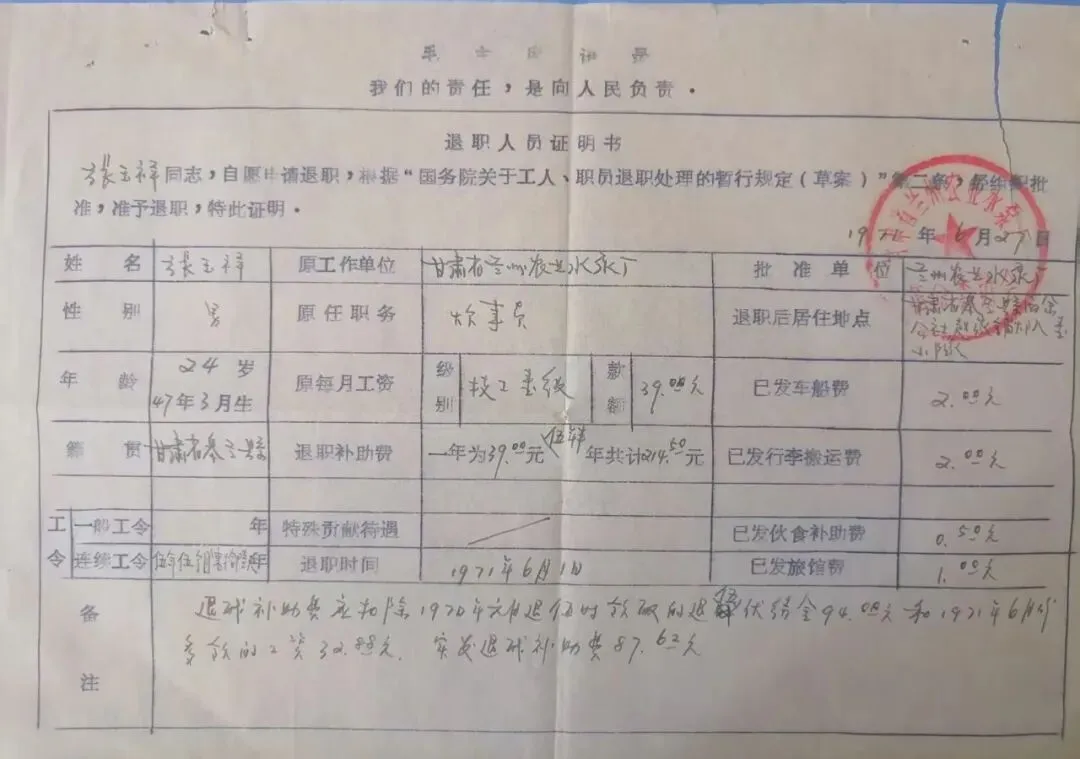 毛主席语录
我们的责任，是向人民负责。
退职人员证明书
张玉祥同志，自愿申请退职，根据“国务院关于工人、职员退职处理的暂行规定（草案）”第二条，经组织批
准，准予退职，特此证明。
1971年6月27日
姓名 张玉祥 原工作单位 甘肃省兰州农业水泵厂 批准单位 兰州农业水泵厂
性别 男 原任职务 炊事员 退职后居住地点 甘肃省秦安县
年龄 24岁 47年3月生 原每月工资 级别 技工壹级 款额 39.00元 已发车船费 2.00元
籍贯 甘肃省秦安县 退职补助费 一年为39.00元 伍年半年共计214.50元 已发行李搬运费 2.00元
工令 一般工令 年 特殊贡献待遇 已发伙食补助费 0.50元
连续工令 年 退职时间 1971年6月1日 已发旅馆费 1.00元
备注 退职补助费应扣除1970年元月退伍时领取的退伍金94.00元和1971年6月份
多领的工资32.88元，实发退职补助费87.62元